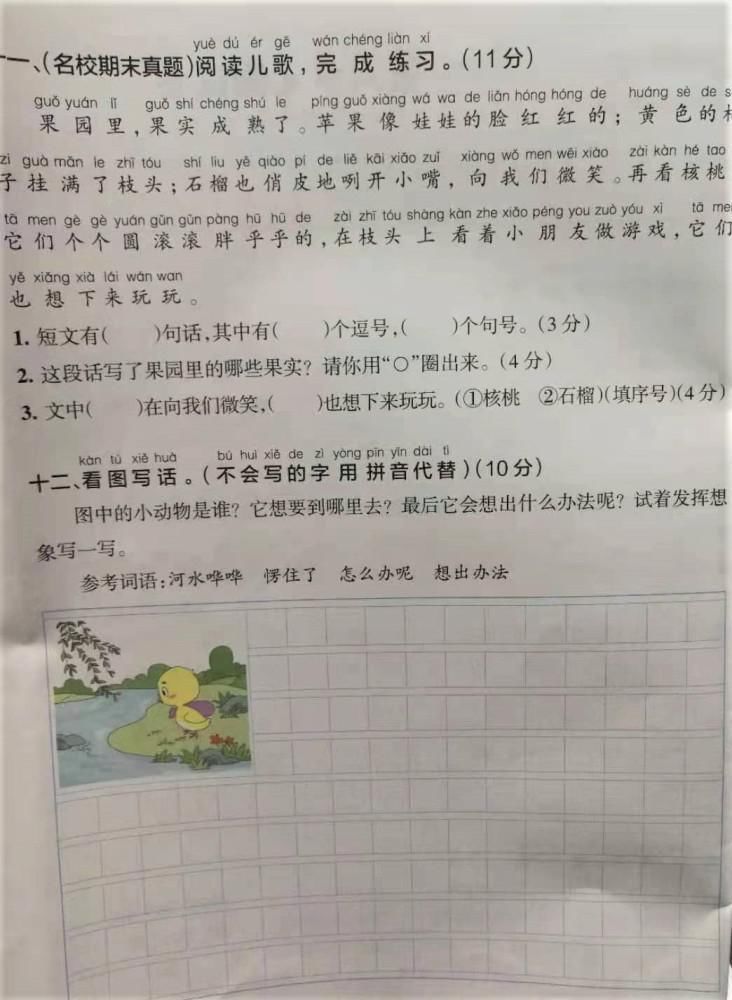 yuè dú ér gē wán chéng liàn xí
十一、(名校期末真题)阅读儿歌,完成练习。(11分)
guǒ yuán lǐ guǒ shí chéng shú le píng guǒ xiàng wá wa de liǎn hóng hóng de huáng sè de
果园里,果实成熟了。苹果像娃娃的脸红红的;黄色的
zi guà mǎn le zhī tóu shí liu yě qiào pí de liě kāi xiǎo zuǐ xiàng wǒ men wēi xiào zài kàn hé tao
子挂满了枝头;石榴也俏皮地咧开小嘴,向我们微笑。再看核桃
tā men gè gè yuán gǔn gǔn pàng hū hū de zài zhī tóu shàng kàn zhe xiǎo péng you zuò yóu xì tā men
它们个个圆滚滚胖乎乎的,在枝头上看着小朋友做游戏,它们
yě xiǎng xià lái wán wan
也想下来玩玩。
1. 短文有( )句话,其中有( )个逗号,( )个句号。(3分)
2. 这段话写了果园里的哪些果实?请你用“○”圈出来。(4分)
3. 文中( )在向我们微笑,( )也想下来玩玩。(①核桃 ②石榴)(填序号)(4分)
kàn tú xiě huà bú huì xiě de zì yòng pīn yīn dài tì
十二、看图写话。(不会写的字用拼音代替)(10分)
图中的小动物是谁?它想要到哪里去?最后它会想出什么办法呢?试着发挥想
象写一写。
参考词语:河水哗哗 愣住了 怎么办呢 想出办法